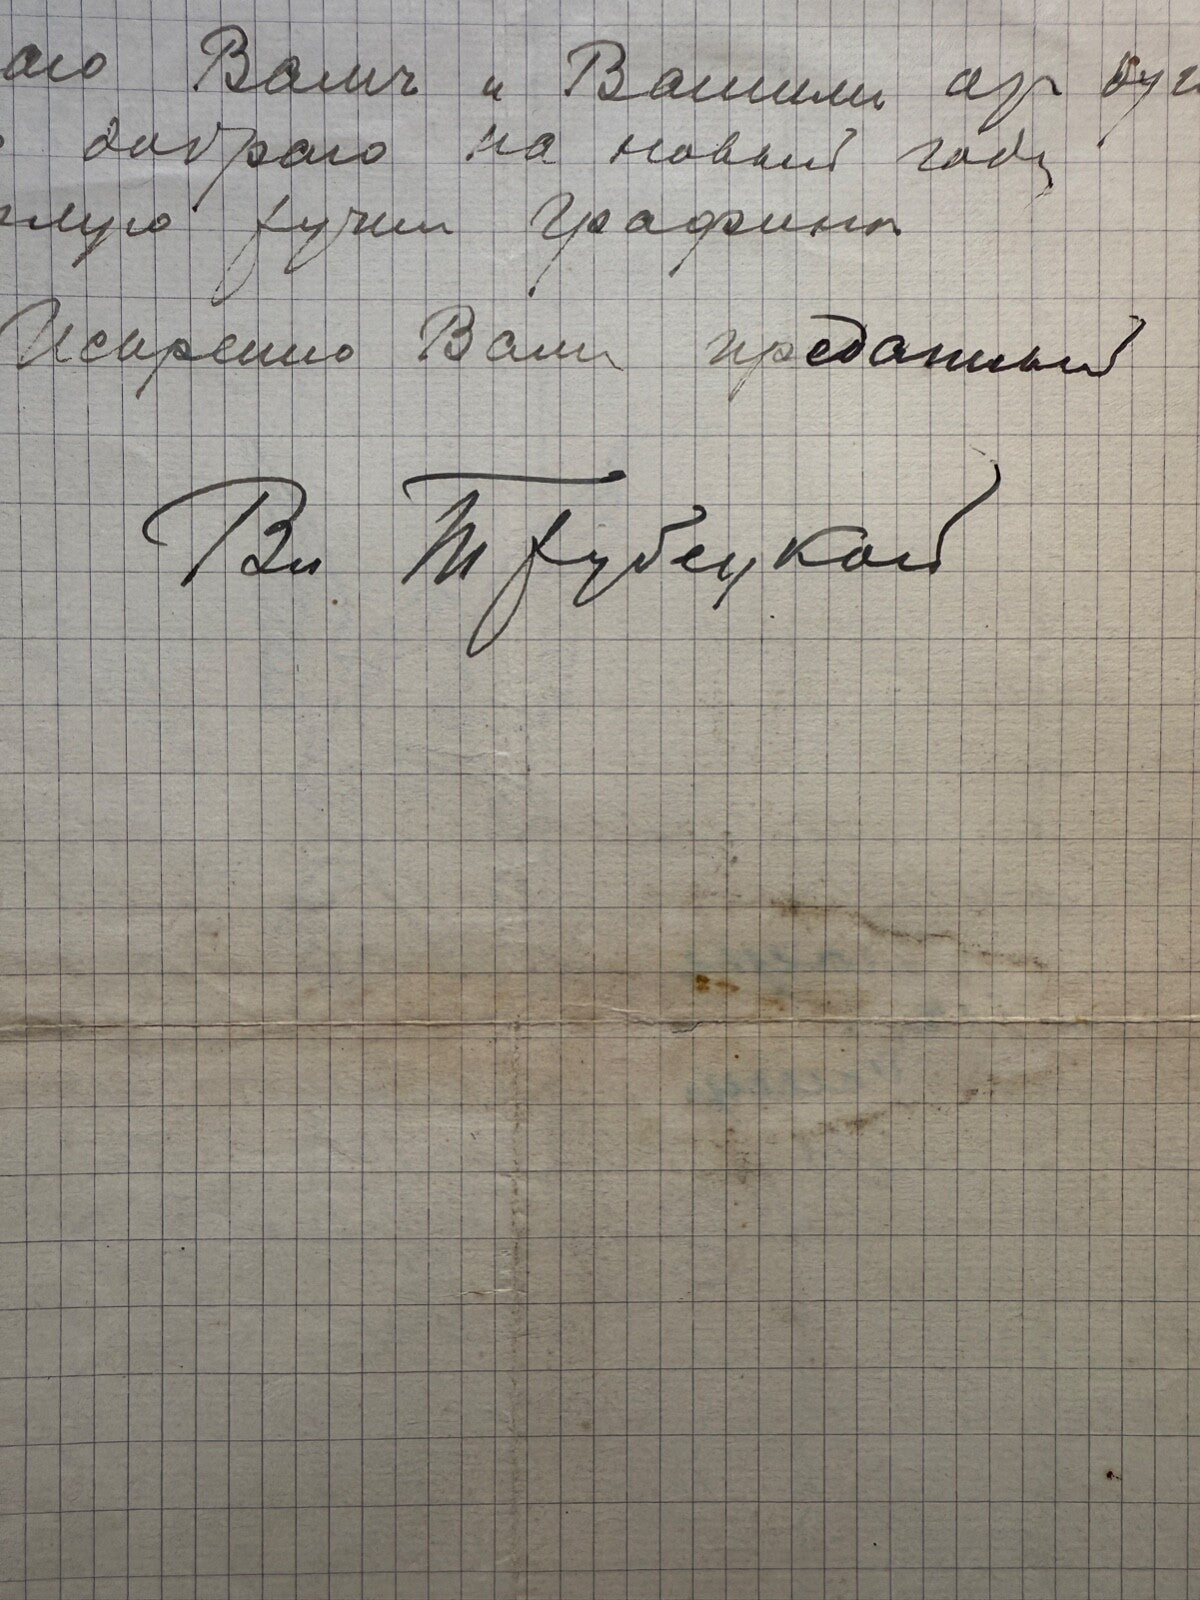 аго Вамъ и Вашимъ
добраго на новый годъ
ручки Графини
Искренно Вамъ преданный
Вл Трубецкой